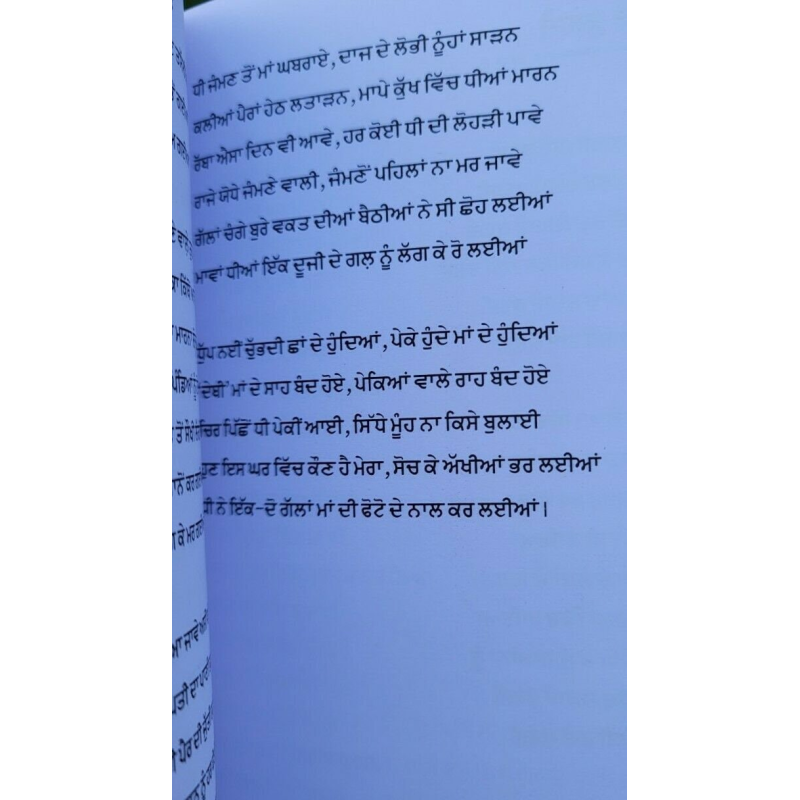 ਧੀ ਜੰਮਣ ਤੋਂ ਮਾਂ ਘਬਰਾਏ, ਦਾਜ ਦੇ ਲੋਭੀ ਨੂੰਹਾਂ ਸਾੜਨ
ਕਲੀਆਂ ਪੈਰਾਂ ਹੇਠ ਲਤਾੜਨ, ਮਾਪੇ ਕੁੱਖ ਵਿੱਚ ਧੀਆਂ ਮਾਰਨ
ਰੱਬਾ ਐਸਾ ਦਿਨ ਵੀ ਆਵੇ, ਹਰ ਕੋਈ ਧੀ ਦੀ ਲੋਹੜੀ ਪਾਵੇ
ਰਾਜੇ ਯੋਧੇ ਜੰਮਣੇ ਵਾਲੀ, ਜੰਮਣੋਂ ਪਹਿਲਾਂ ਨਾ ਮਰ ਜਾਵੇ
ਗੱਲਾਂ ਚੰਗੇ ਬੁਰੇ ਵਕਤ ਦੀਆਂ ਬੈਠੀਆਂ ਨੇ ਸੀ ਛੋਹ ਲਈਆਂ
ਮਾਵਾਂ ਧੀਆਂ ਇੱਕ ਦੂਜੀ ਦੇ ਗਲ਼ ਨੂੰ ਲੱਗ ਕੇ ਰੋ ਲਈਆਂ
ਧੁੱਪ ਨਈਂ ਚੁੱਭਦੀ ਛਾਂ ਦੇ ਹੁੰਦਿਆਂ, ਪੇਕੇ ਹੁੰਦੇ ਮਾਂ ਦੇ ਹੁੰਦਿਆਂ
'ਦੇਬੀ' ਮਾਂ ਦੇ ਸਾਹ ਬੰਦ ਹੋਏ, ਪੇਕਿਆਂ ਵਾਲੇ ਰਾਹ ਬੰਦ ਹੋਏ
ਚਿਰ ਪਿੱਛੋਂ ਧੀ ਪੇਕੀਂ ਆਈ, ਸਿੱਧੇ ਮੂੰਹ ਨਾ ਕਿਸੇ ਬੁਲਾਈ
ਹੁਣ ਇਸ ਘਰ ਵਿੱਚ ਕੌਣ ਹੈ ਮੇਰਾ, ਸੋਚ ਕੇ ਅੱਖੀਆਂ ਭਰ ਲਈਆਂ
ਧੀ ਨੇ ਇੱਕ-ਦੋ ਗੱਲਾਂ ਮਾਂ ਦੀ ਫੋਟੋ ਦੇ ਨਾਲ ਕਰ ਲਈਆਂ।